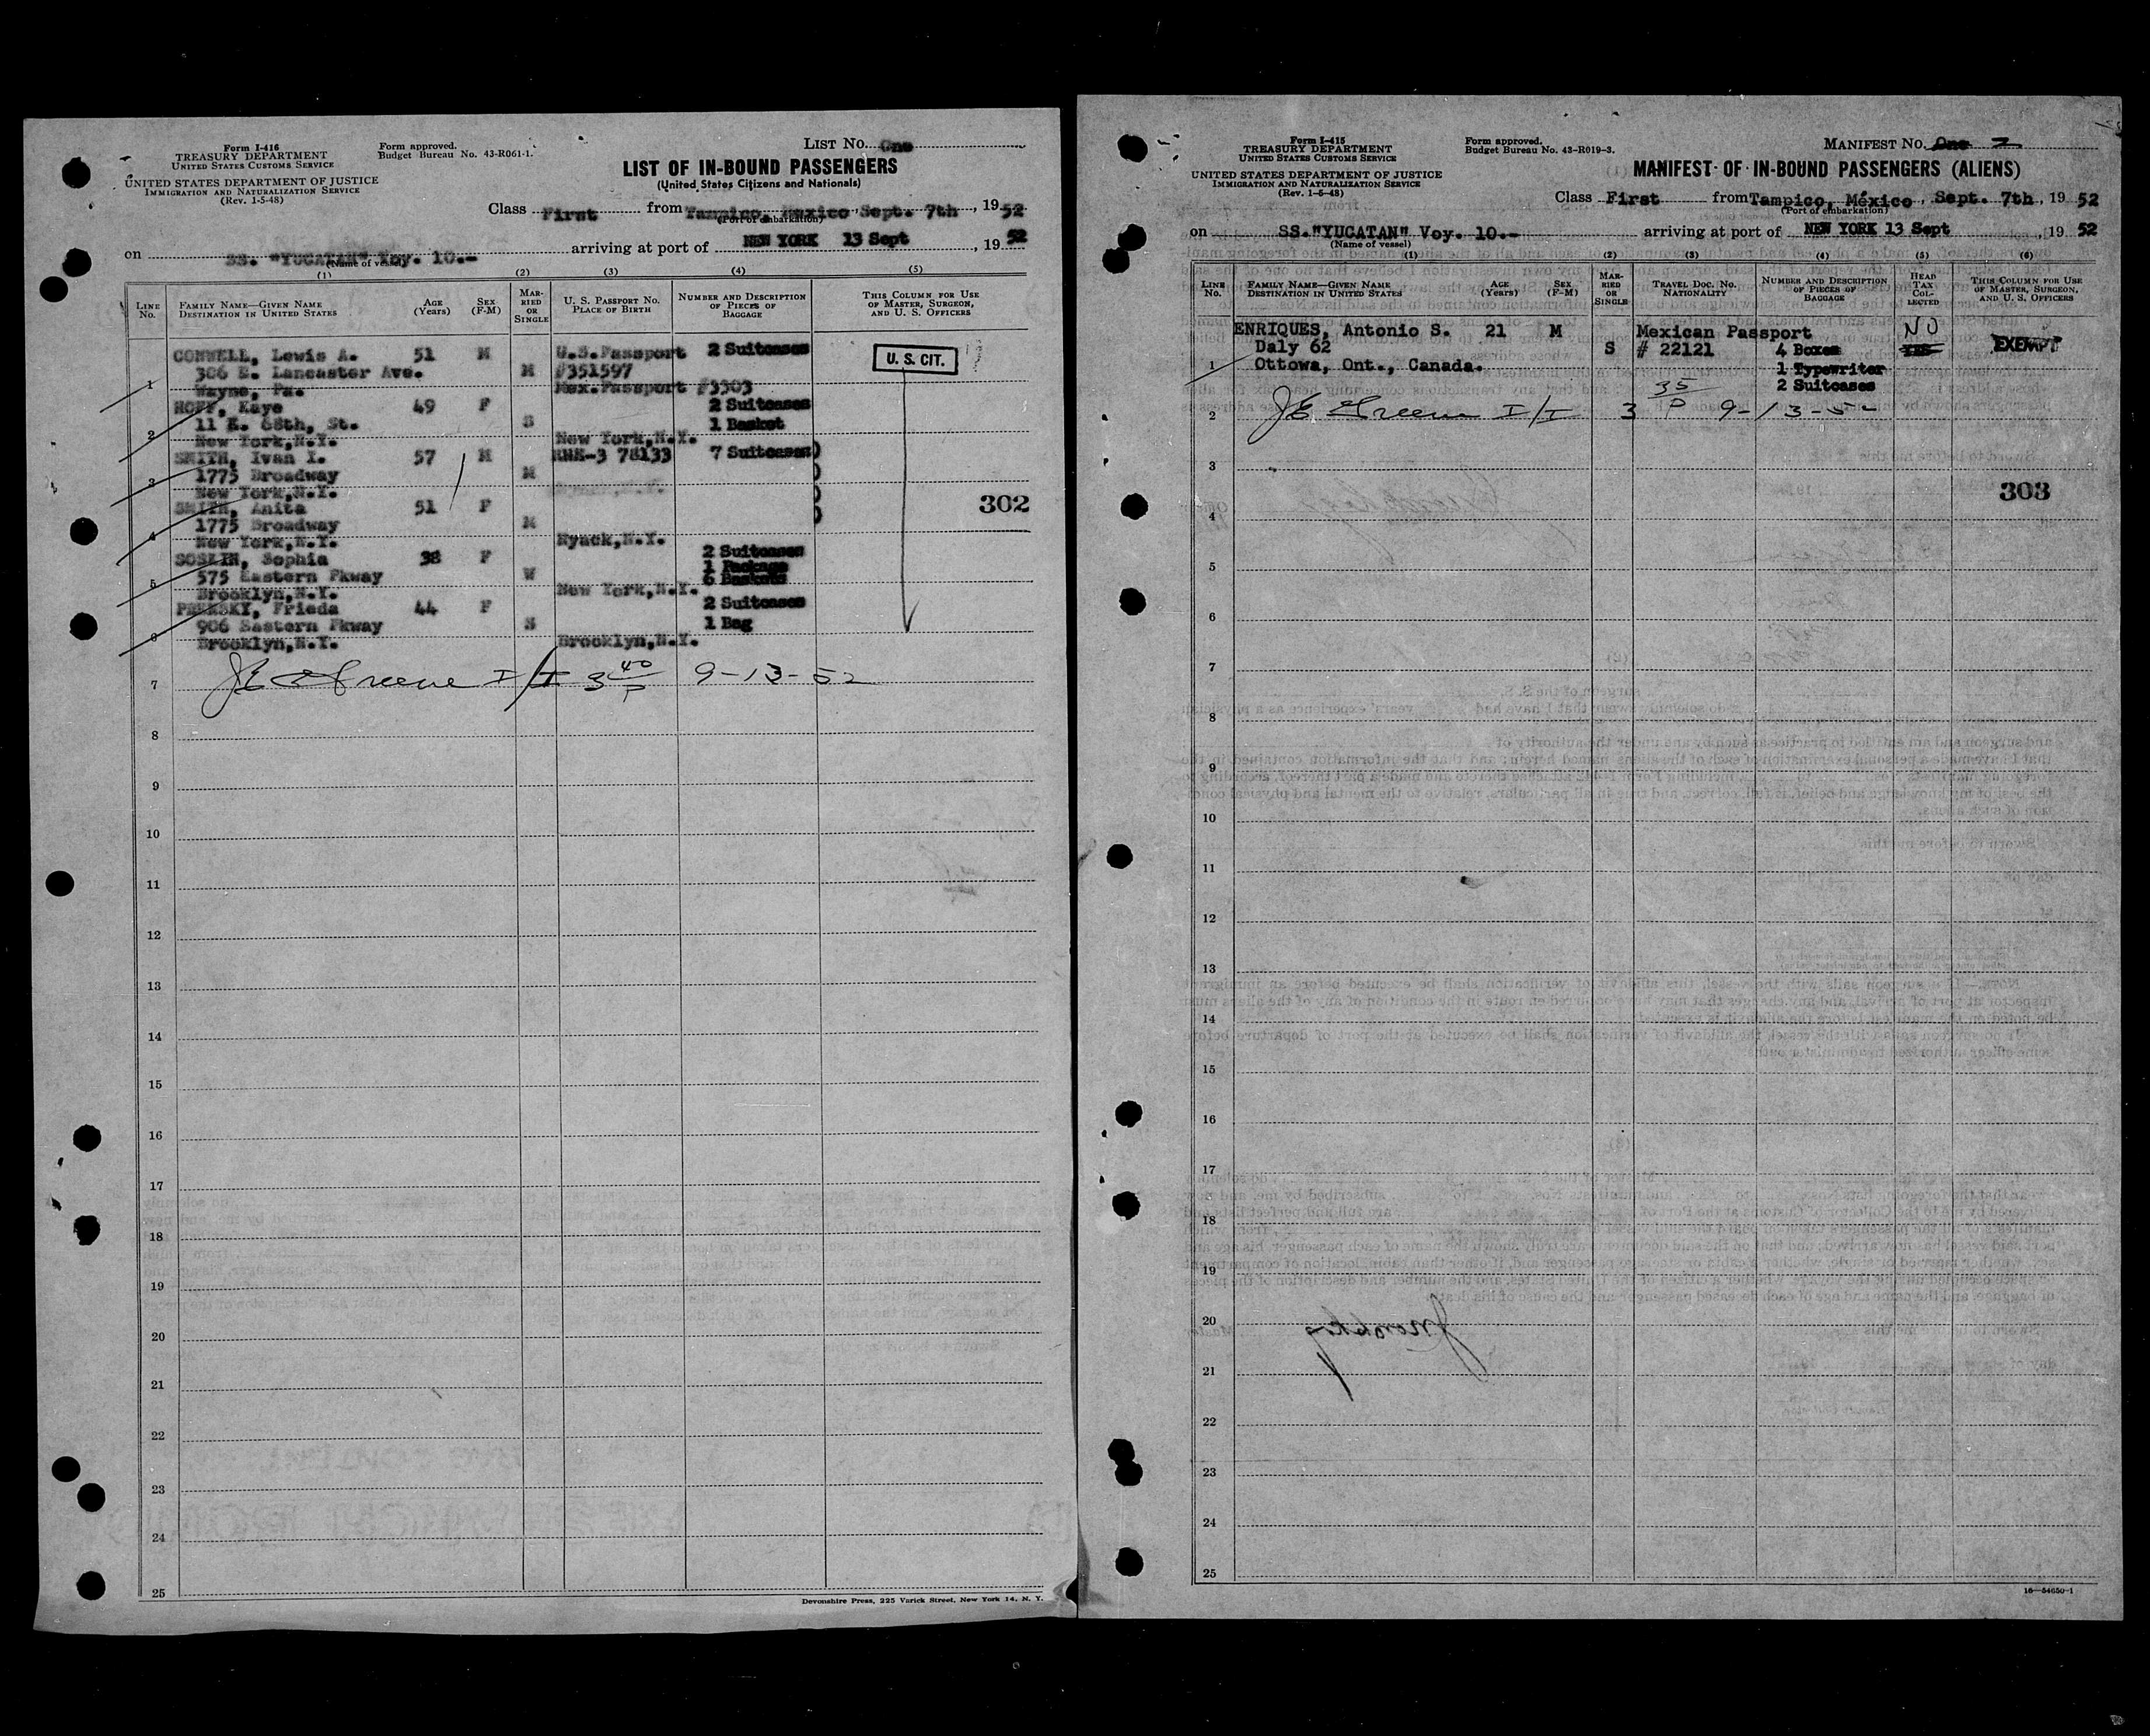 Form I-416
TREASURY DEPARTMENT
UNITED STATES CUSTOMS SERVICE
UNITED STATES DEPARTMENT OF JUSTICE
IMMIGRATION AND NATURALIZATION SERVICE
(Rev. 1-5-48)
Form approved.
Budget Bureau No. 43-R061-1.
LIST No. One
LIST OF IN-BOUND PASSENGERS
(United States Citizens and Nationals)
Class First from Tampico, Mexico, Sept. 7th, 1952
(Port of embarkation)
on SS. "YUCATAN" Voy. 10.- arriving at port of NEW YORK 13 Sept, 1952
(Name of vessel)
(1) (2) (3) (4) (5)
LINE No. FAMILY NAME—GIVEN NAME DESTINATION IN UNITED STATES AGE (Years) SEX (F-M) MARRIED OR SINGLE U. S. PASSPORT NO. PLACE OF BIRTH NUMBER AND DESCRIPTION OF PIECES OF BAGGAGE THIS COLUMN FOR USE OF MASTER, SURGEON, AND U. S. OFFICERS
CONWELL, Lewis A. 51 M U.S.Passport 2 Suitcases
306 E. Lancaster Ave. M #351597
U. S. CIT.
1 Wayne, Pa. Mex.Passport #3303
HOFF, Kaye 49 F 2 Suitcases
11 E. 68th, St. S 1 Basket
2 New York,N.Y. New York,N.Y.
SMITH, Ivan I. 57 M 78133 7 Suitcases)
1775 Broadway M )
3 New York,N.Y. )
SMITH, Anita 51 F )
302
1775 Broadway M
4 New York,N.Y. Nyack,N.Y.
SOSLIN, Sophia 38 F 2 Suitcases
1 Package
575 Eastern Pkway W 6 Baskets
5 Brooklyn,N.Y. New York,N.Y.
PRENSKY, Frieda 44 F 2 Suitcases
906 Eastern Pkway S 1 Bag
6 Brooklyn,N.Y. Brooklyn,N.Y.
7 JE Greene I/I 3 40 P 9-13-52
8
9
10
11
12
13
14
15
16
17
18
19
20
21
22
23
24
25
Devonshire Press, 225 Varick Street, New York 14, N. Y.
Form I-415
TREASURY DEPARTMENT
UNITED STATES CUSTOMS SERVICE
UNITED STATES DEPARTMENT OF JUSTICE
IMMIGRATION AND NATURALIZATION SERVICE
(Rev. 1-5-48)
Form approved.
Budget Bureau No. 43-R019-3.
MANIFEST No. One 2
MANIFEST OF IN-BOUND PASSENGERS (ALIENS)
Class First from Tampico, México, Sept. 7th, 1952
(Port of embarkation)
on SS."YUCATAN" Voy. 10.- arriving at port of NEW YORK 13 Sept, 1952
(Name of vessel)
(1) (2) (3) (4) (5) (6)
LINE No. FAMILY NAME—GIVEN NAME DESTINATION IN UNITED STATES AGE (Years) SEX (F-M) MARRIED OR SINGLE TRAVEL DOC. NO. NATIONALITY NUMBER AND DESCRIPTION OF PIECES OF BAGGAGE HEAD TAX COLLECTED THIS COLUMN FOR USE OF MASTER, SURGEON, AND U. S. OFFICERS
ENRIQUES, Antonio S. 21 M Mexican Passport NO
Daly 62 S # 22121 4 Boxes YES EXEMPT
1 Ottowa, Ont., Canada. 1 Typewriter
2 Suitcases
2 JE Greene I/I 3 35 P 9-13-52
3
303
4
5
6
7
8
9
10
11
12
13
14
15
16
17
18
19
20
21
22
23
24
25
16—54650-1